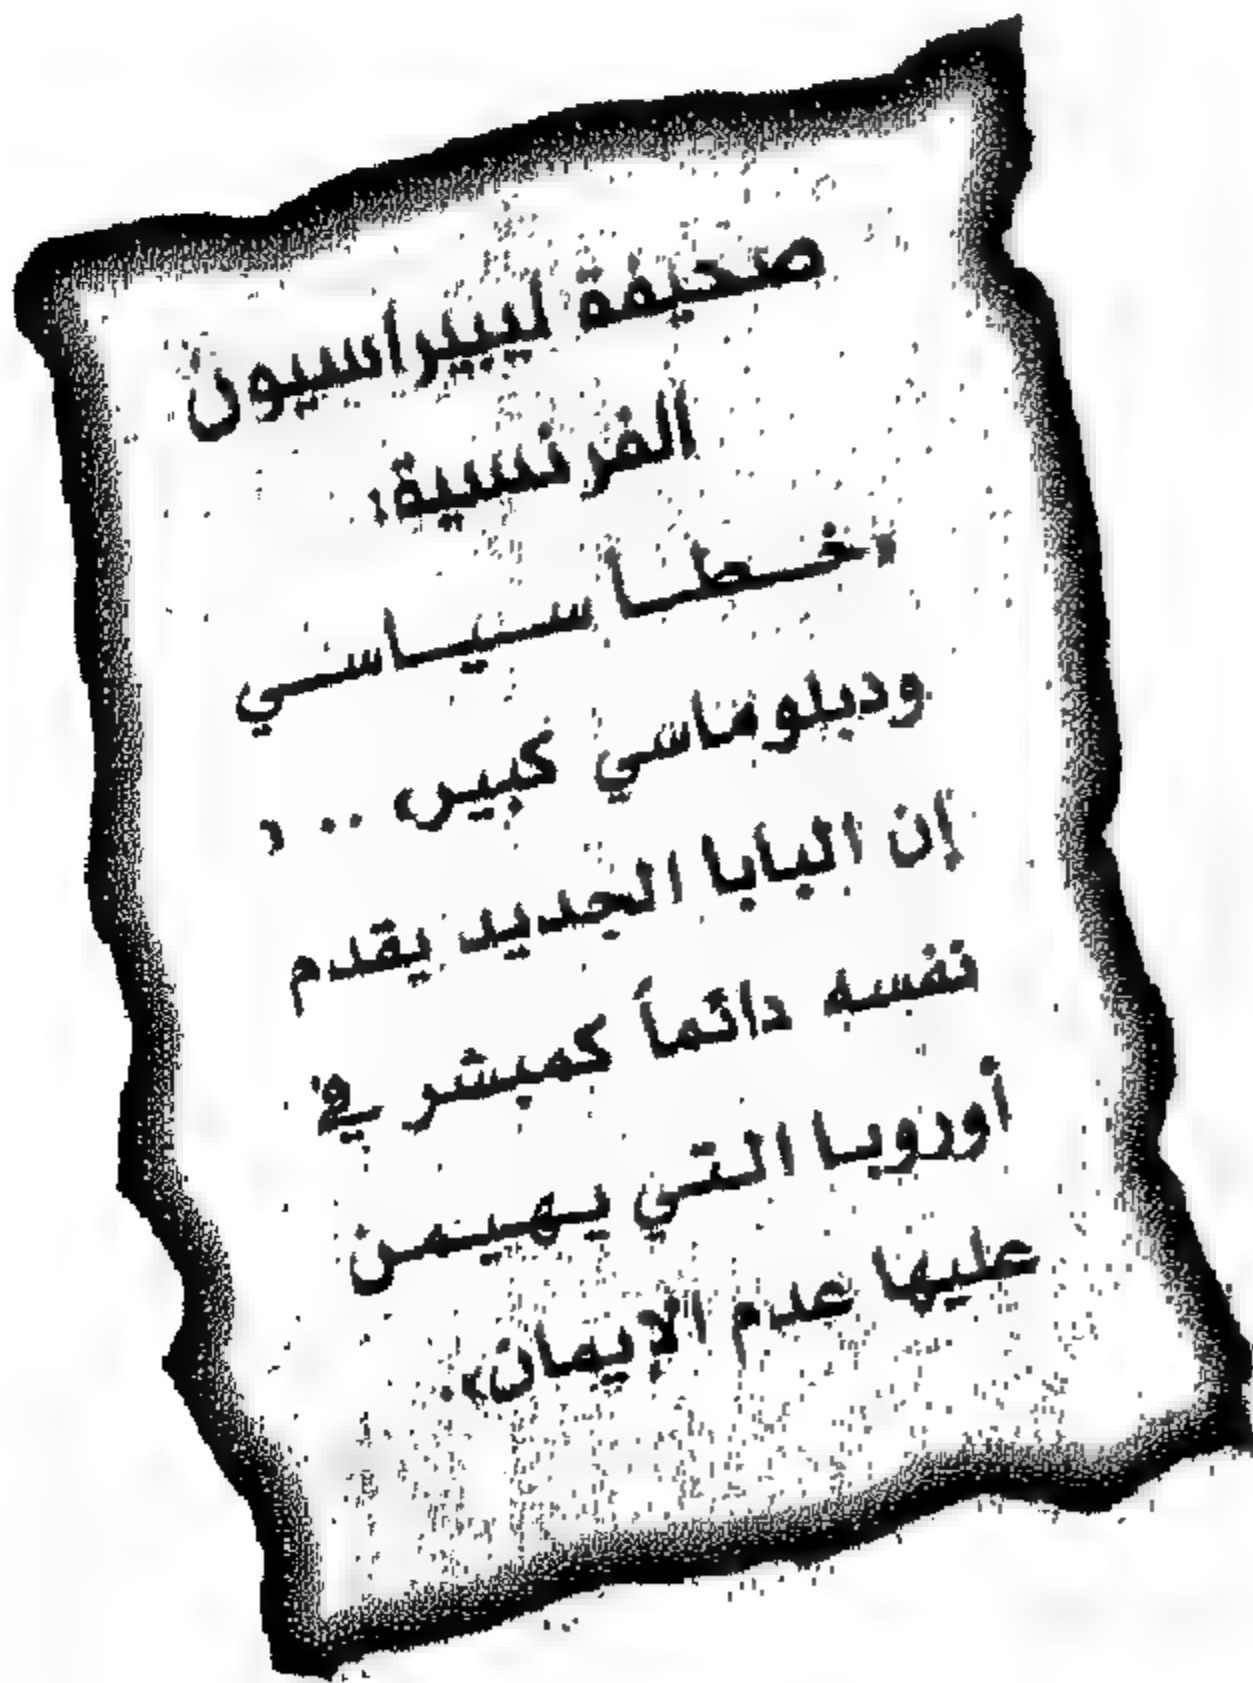 صحيفة ليبيراسيون
الفرنسية،
«خطأ سياسي
ودبلوماسي كبير .. ،
إن البابا الجديد يقدم
نفسه دائماً كمبشر في
أوروبا التي يهيمن
عليها عدم الإيمان».